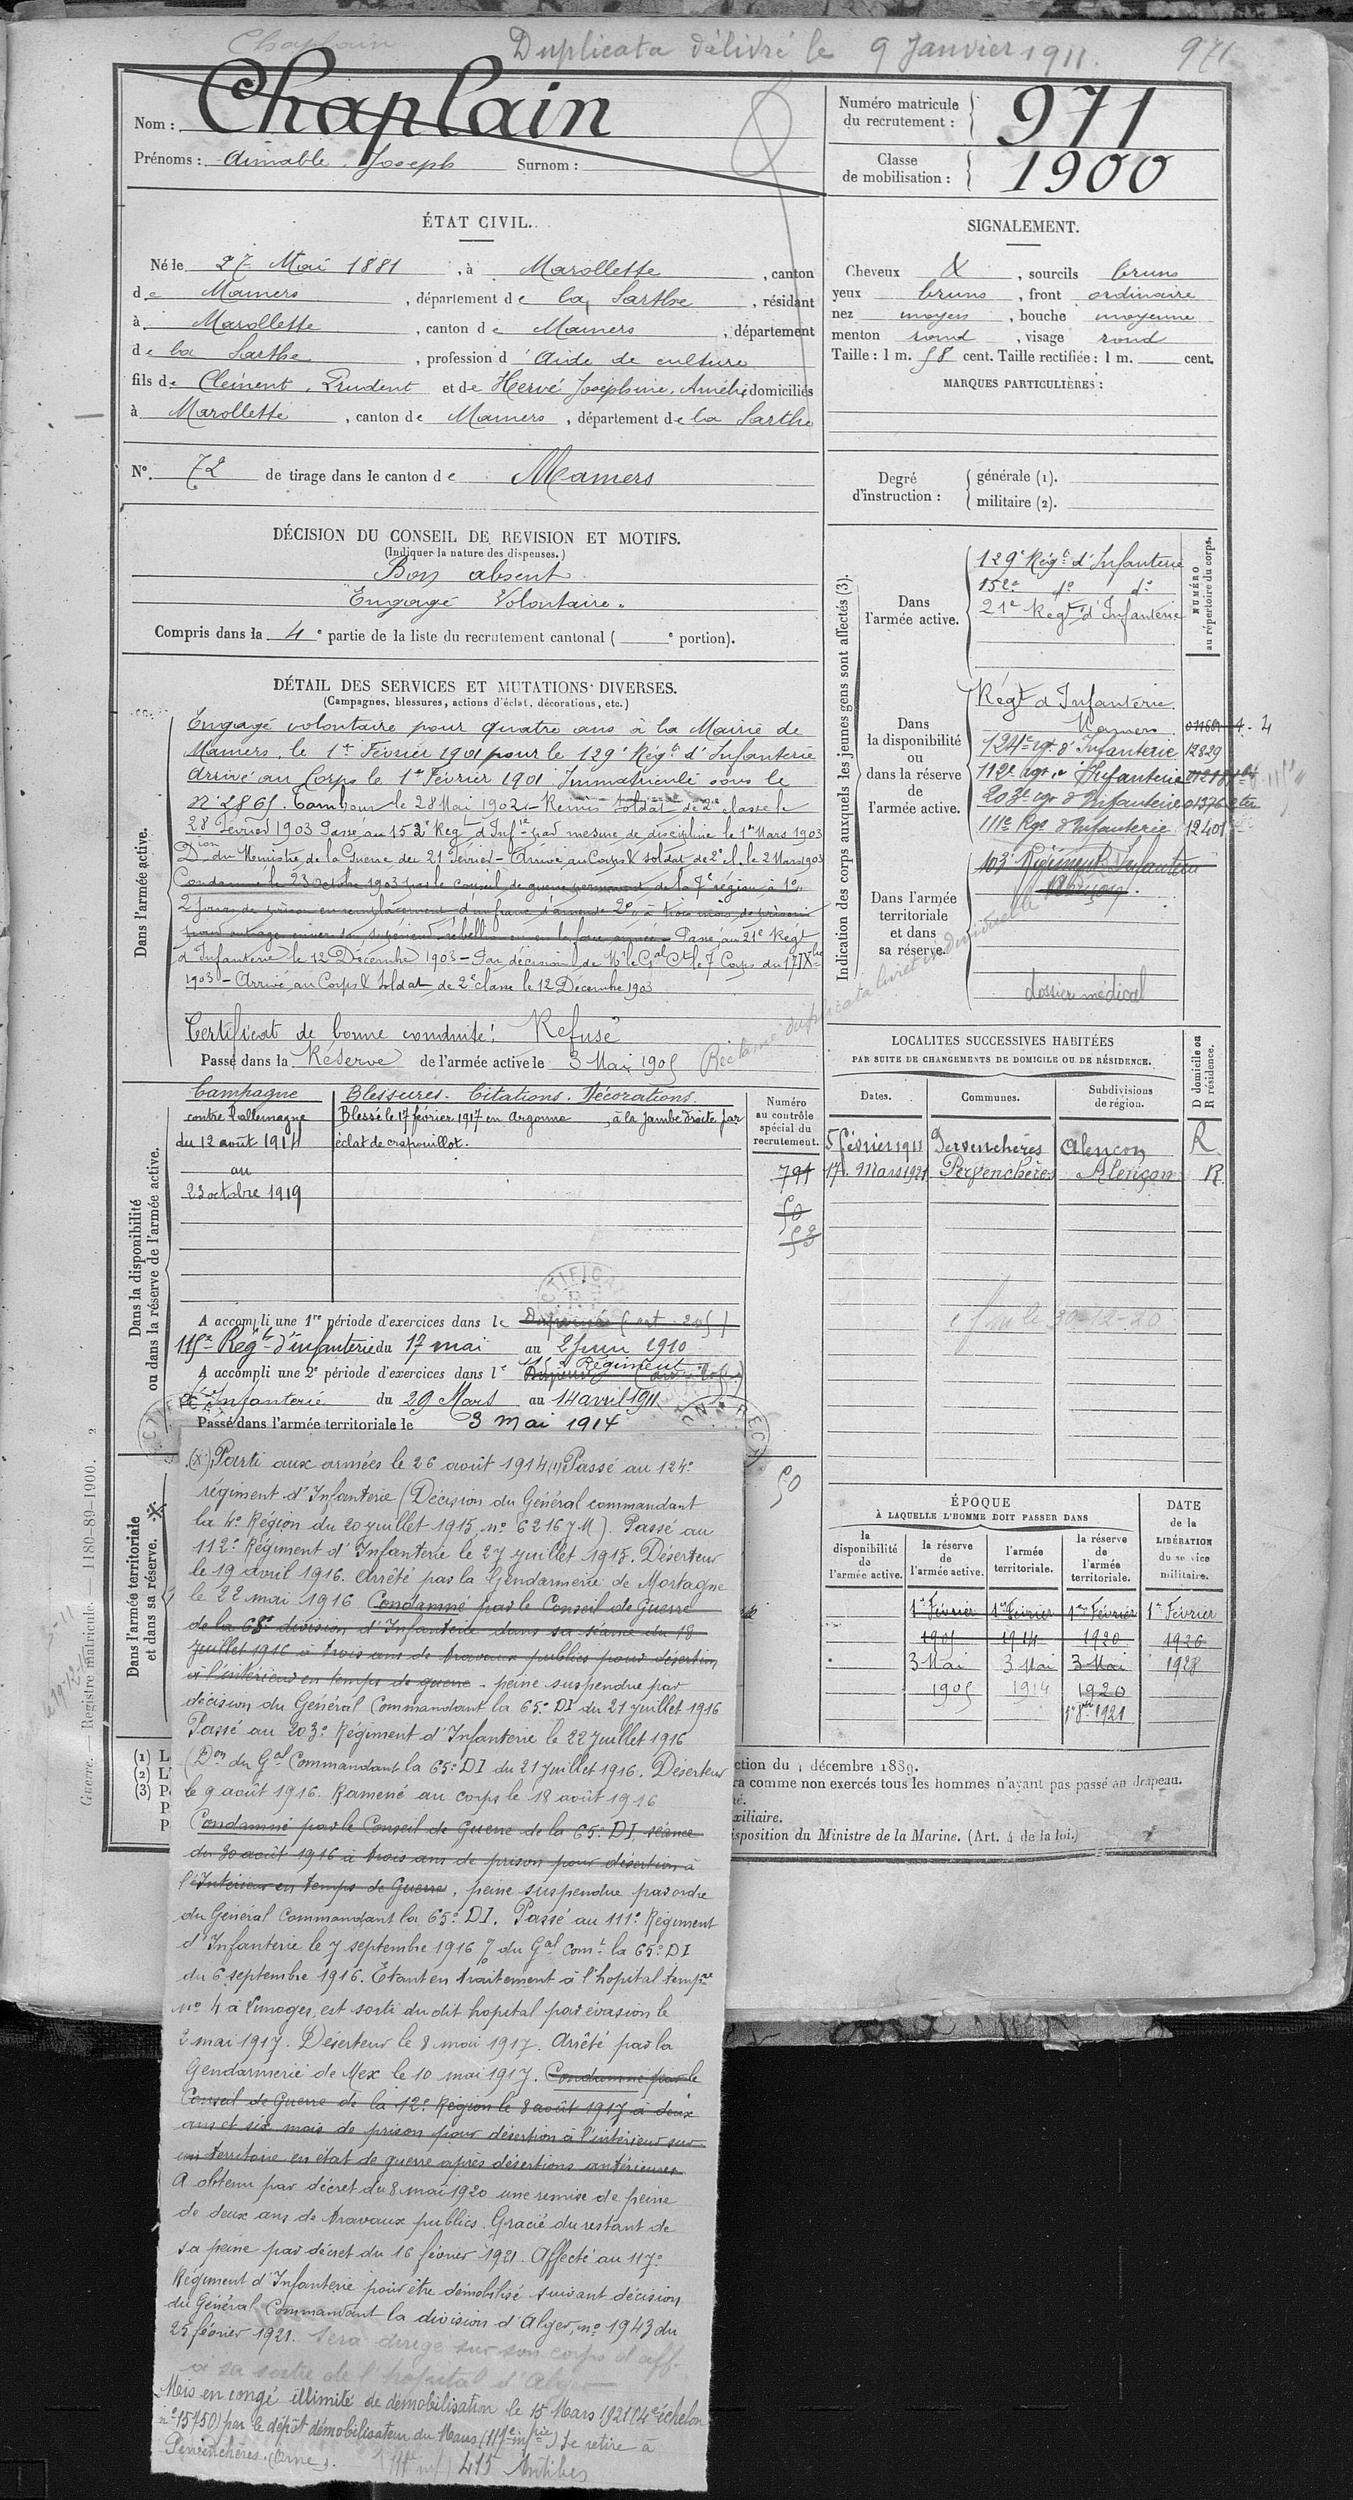 Chaplain
Duplicata délivré le 9 Janvier 1911.
971
Nom : Chaplain
Prénoms : Aimable, Joseph Surnom :
Numéro matricule du recrutement : 971
Classe de mobilisation : 1900
ÉTAT CIVIL.
Né le 27 Mai 1881, à Marollette, canton
de Mamers, département de la Sarthe, résidant
à Marollette, canton de Mamers, département
de la Sarthe, profession d'Aide de culture
fils de Clément, Prudent et de Hervé Joséphine, Amélie domiciliés
à Marollette, canton de Mamers, département de la Sarthe
N° 72 de tirage dans le canton de Mamers
SIGNALEMENT.
Cheveux X, sourcils bruns
yeux bruns, front ordinaire
nez moyen, bouche moyenne
menton rond, visage rond
Taille : 1 m. 58 cent. Taille rectifiée : 1 m. cent.
MARQUES PARTICULIÈRES :
Degré d'instruction : générale (1).
militaire (2).
DÉCISION DU CONSEIL DE REVISION ET MOTIFS.
(Indiquer la nature des dispenses.)
Bon absent
Engagé Volontaire.
Compris dans la 4e partie de la liste du recrutement cantonal ( e portion).
DÉTAIL DES SERVICES ET MUTATIONS DIVERSES.
(Campagnes, blessures, actions d'éclat, décorations, etc.)
Dans l'armée active.
Engagé volontaire pour quatre ans à la Mairie de
Mamers, le 1er Février 1901 pour le 129e Régt d'Infanterie
Arrivé au Corps le 1er Février 1901 Immatriculé sous le
N° 2865. Tambour le 28 Mai 1902 - Remis soldat de 2e classe le
28 Février 1903 Passé au 152e Regt d'Infie par mesure de discipline le 1er Mars 1903
Don du Ministre de la Guerre du 21 Février - Arrivé au Corps & soldat de 2e cl. le 2 Mars 1903
Condamné le 23 octobre 1903 par le conseil de guerre permanent de la 7e région à 1°
2 jours de prison en remplacement d'un franc d'amende 2° à trois mois de prison
pour outrage envers son supérieur rébellion envers la force armée - Passé au 21e Régt
d'Infanterie le 12 Décembre 1903 - Par décision de Mr le Gal Ct le 7 Corps du 17 IXbre
1903 - Arrivé au Corps & Soldat de 2e classe le 12 Décembre 1903
Certificat de bonne conduite : Refusé
Passé dans la Réserve de l'armée active le 3 Mai 1905
Réclame duplicata livret individuel
Indication des corps auxquels les jeunes gens sont affectés (3).
NUMÉRO au répertoire du corps.
Dans l'armée active.
129e Régt d'Infanterie
152e do do
21e Regt d'Infanterie
Dans la disponibilité ou dans la réserve de l'armée active.
Régt d'Infanterie
Mamers
124e rgt d'Infanterie 12829
112e rgt d'Infanterie
203e rgt d'Infanterie
111e Rgt d'Infanterie 12401
Dans l'armée territoriale et dans sa réserve.
103e Régiment Infanterie
Alençon.
dossier médical
Dans la disponibilité ou dans la réserve de l'armée active.
Campagne
contre l'allemagne
du 12 août 1914
au
23 octobre 1919
Blessures. Citations. Décorations.
Blessé le 17 février 1917 en Argonne, à la jambe droite par
éclat de crapouillot.
Numéro au contrôle spécial du recrutement.
791
50
53
50
LOCALITES SUCCESSIVES HABITÉES
PAR SUITE DE CHANGEMENTS DE DOMICILE OU DE RÉSIDENCE.
Dates. Communes. Subdivisions de région. D domicile ou R résidence.
5 février 1911 Pervenchères Alençon R
17 Mars 1921 Pervenchères Alençon R
30-12-20
A accompli une 1re période d'exercices dans le
115e Régt d'infanterie du 17 mai au 2 Juin 1910
A accompli une 2e période d'exercices dans le 115e Régiment
d'Infanterie du 29 Mars au 14 avril 1911
Passé dans l'armée territoriale le 3 mai 1914
Dans l'armée territoriale et dans sa réserve.
(X) Parti aux armées le 26 août 1914 (1) Passé au 124e
régiment d'Infanterie (Décision du Général commandant
la 4e Région du 20 juillet 1915, no 6216/M). Passé au
112e Régiment d'Infanterie le 27 juillet 1915. Déserteur
le 19 avril 1916. Arrêté par la Gendarmerie de Mortagne
le 22 mai 1916 Condamné par le Conseil de Guerre
de la 65e division d'Infanterie dans sa séance du 18
Juillet 1916 à trois ans de travaux publics pour désertion
à l'intérieur en temps de guerre - peine suspendue par
décision du Général Commandant la 65e DI du 21 juillet 1916
Passé au 203e Régiment d'Infanterie le 22 juillet 1916
(Don du Gal Commandant la 65e DI du 21 juillet 1916. Déserteur
le 9 août 1916. Ramené au corps le 18 août 1916
Condamné par le Conseil de Guerre de la 65e DI, séance
du 30 août 1916 à trois ans de prison pour désertion à
l'Intérieur en temps de Guerre, peine suspendue par ordre
du Général Commandant la 65e DI. Passé au 111e Régiment
d'Infanterie le 7 septembre 1916 du Gal Comt la 65e DI
du 6 septembre 1916. Etant en traitement à l'hopital tempre
no 4 à Limoges, est sorti du dit hopital par évasion le
2 mai 1917. Déserteur le 8 mai 1917. Arrêté par la
Gendarmerie de Mex le 10 mai 1917. Condamné par le
Conseil de Guerre de la 12e Région le 8 août 1917 à deux
ans et six mois de prison pour désertion à l'intérieur sur
un territoire en état de guerre après désertions antérieures
A obtenu par décret du 8 mai 1920 une remise de peine
de deux ans de travaux publics. Gracié du restant de
sa peine par décret du 16 février 1921. Affecté au 117e
Régiment d'Infanterie pour être démobilisé suivant décision
du Général Commandant la division d'Alger, no 1943 du
25 février 1921. Sera dirigé sur son corps d'aff.
à sa sortie de l'hopital d'Alger
Mis en congé illimité de démobilisation le 15 Mars 1921 (4e échelon
no 15750) par le dépôt démobilisateur du Mans (117e infrie) Se retire à
Pervenchères. (Orne). (111e inf) 415 Antibes
ÉPOQUE
À LAQUELLE L'HOMME DOIT PASSER DANS
la disponibilité de l'armée active. la réserve de l'armée active. l'armée territoriale. la réserve de l'armée territoriale.
DATE de la LIBÉRATION du service militaire.
1er Février 1er Février 1er Février 1er Février
1905 1914 1920 1926
3 Mai 3 Mai 3 Mai 1928
1905 1914 1920
1er 8bre 1921
(1) L
(2) L'
(3) P
P
P
ction du décembre 1889.
ra comme non exercés tous les hommes n'ayant pas passé au drapeau.
é.
xiliaire.
isposition du Ministre de la Marine. (Art. 4 de la loi.)
Guerre. — Registre matricule. — 1180-89-1900.
2